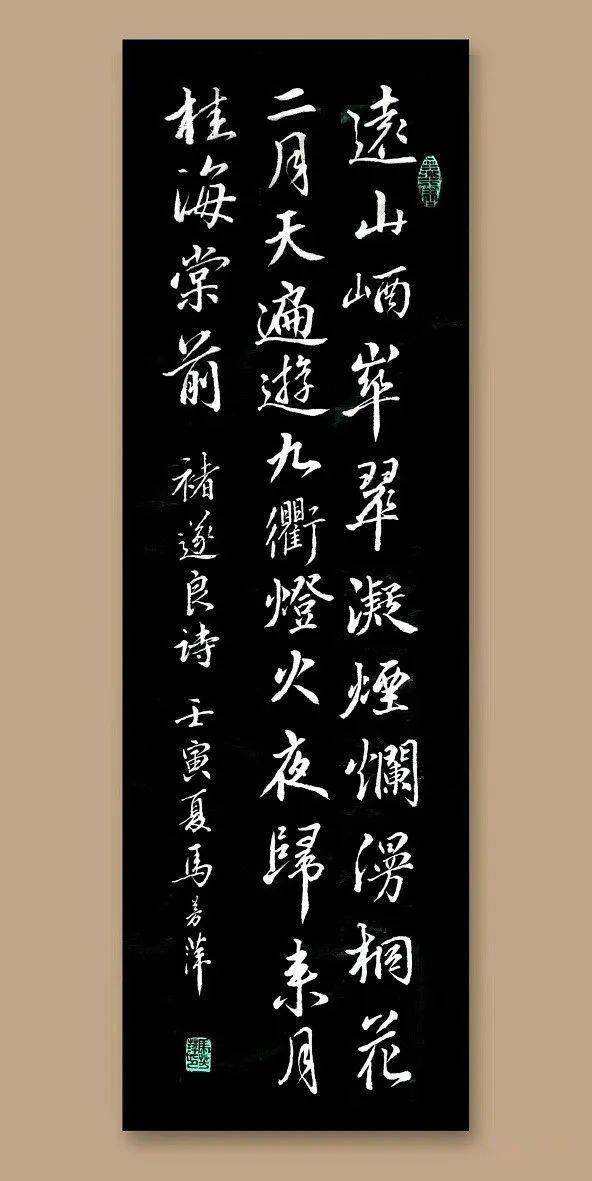 遠山崷崒翠凝煙爛漫桐花
二月天遍遊九衢燈火夜歸来月
桂海棠前 褚遂良诗 壬寅夏馬芳萍